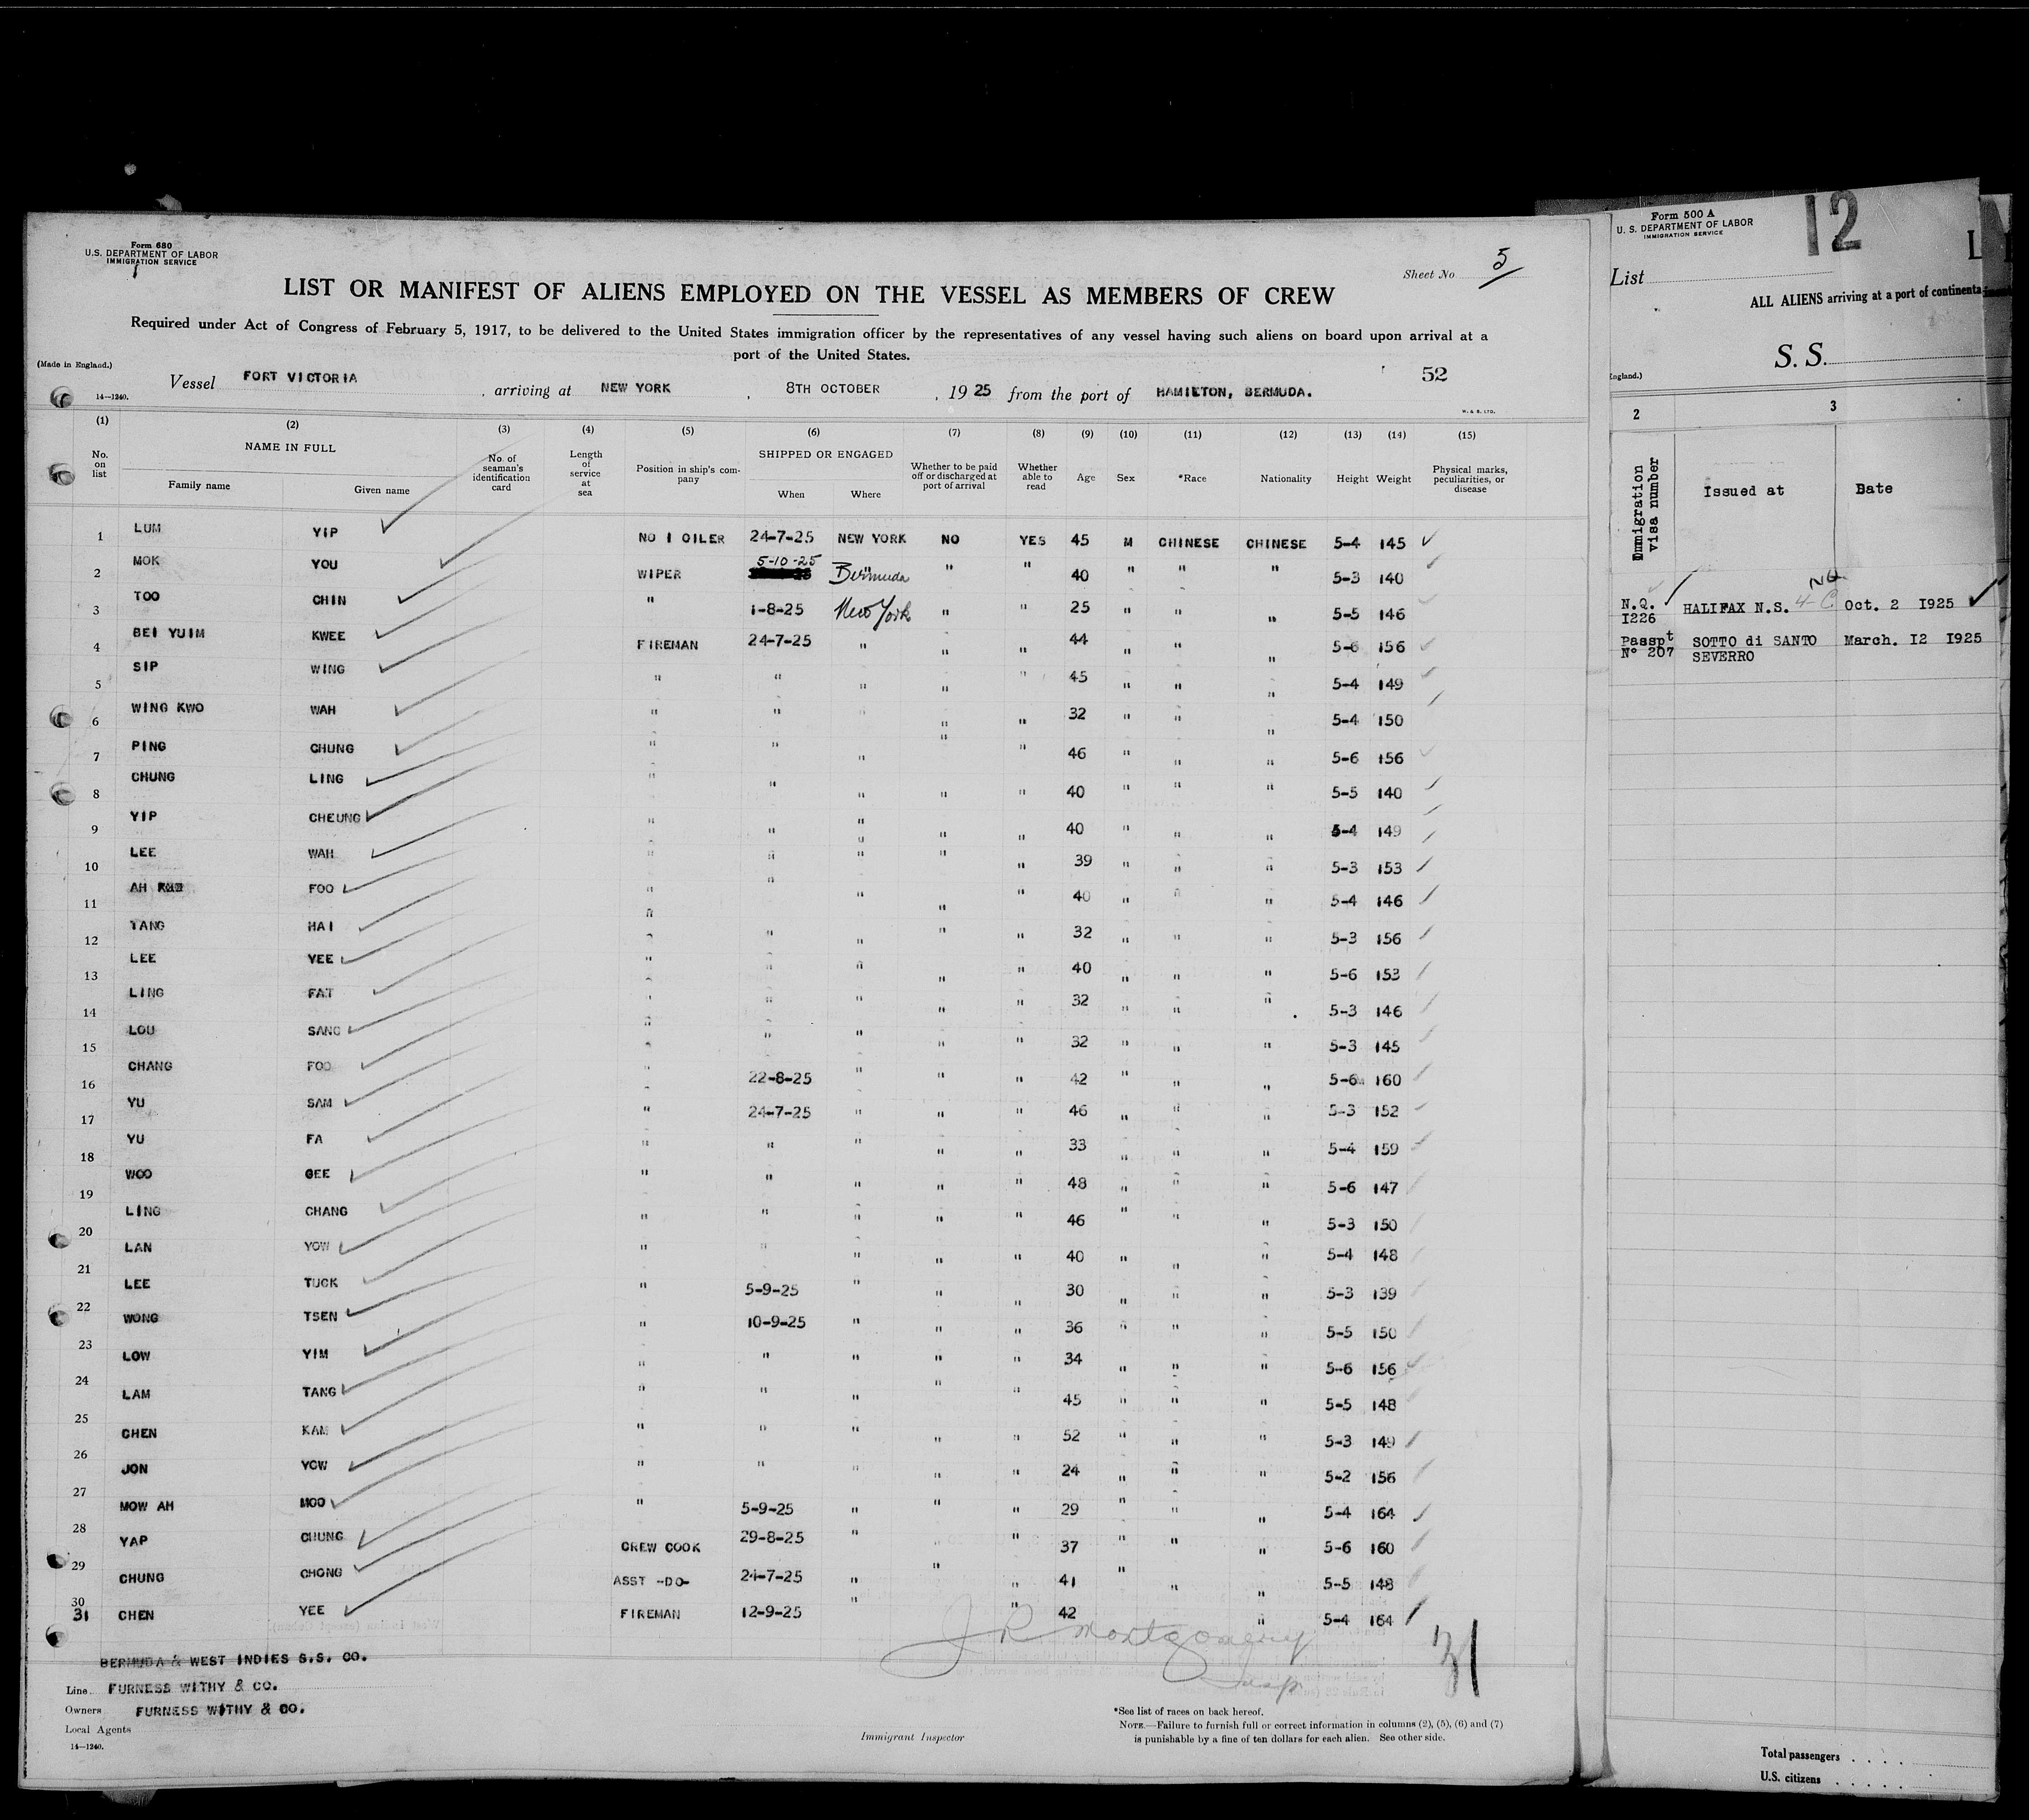 Form 680
U.S. DEPARTMENT OF LABOR
IMMIGRATION SERVICE
Sheet No 5
LIST OR MANIFEST OF ALIENS EMPLOYED ON THE VESSEL AS MEMBERS OF CREW
Required under Act of Congress of February 5, 1917, to be delivered to the United States immigration officer by the representatives of any vessel having such aliens on board upon arrival at a
port of the United States.
(Made in England.)
52
Vessel FORT VICTORIA, arriving at NEW YORK, 8TH OCTOBER, 1925 from the port of HAMILTON, BERMUDA.
14—1240.
W. & S. LTD.
(1) (2) (3) (4) (5) (6) (7) (8) (9) (10) (11) (12) (13) (14) (15)
No. on list NAME IN FULL Family name Given name No. of seaman's identification card Length of service at sea Position in ship's company SHIPPED OR ENGAGED When Where Whether to be paid off or discharged at port of arrival Whether able to read Age Sex *Race Nationality Height Weight Physical marks, peculiarities, or disease
1 LUM YIP NO 1 OILER 24-7-25 NEW YORK NO YES 45 M CHINESE CHINESE 5-4 145
2 MOK YOU WIPER 5-10-25 Bermuda " " 40 " " " 5-3 140
3 TOO CHIN " 1-8-25 New York " " 25 " " " 5-5 146
4 BEI YUIM KWEE FIREMAN 24-7-25 " " " 44 " " " 5-6 156
5 SIP WING " " " " " 45 " " " 5-4 149
6 WING KWO WAH " " " " " 32 " " " 5-4 150
7 PING CHUNG " " " " " 46 " " " 5-6 156
8 CHUNG LING " " " " " 40 " " " 5-5 140
9 YIP CHEUNG " " " " " 40 " " " 5-4 149
10 LEE WAH " " " " " 39 " " " 5-3 153
11 AH FOO " " " " " 40 " " " 5-4 146
12 TANG HAI " " " " " 32 " " " 5-3 156
13 LEE YEE " " " " " 40 " " " 5-6 153
14 LING FAT " " " " " 32 " " " 5-3 146
15 LOU SANG " " " " " 32 " " " 5-3 145
16 CHANG FOO " 22-8-25 " " " 42 " " " 5-6 160
17 YU SAM " 24-7-25 " " " 46 " " " 5-3 152
18 YU FA " " " " " 33 " " " 5-4 159
19 WOO GEE " " " " " 48 " " " 5-6 147
20 LING CHANG " " " " " 46 " " " 5-3 150
21 LAN YOW " " " " " 40 " " " 5-4 148
22 LEE TUCK " 5-9-25 " " " 30 " " " 5-3 139
23 WONG TSEN " 10-9-25 " " " 36 " " " 5-5 150
24 LOW YIM " " " " " 34 " " " 5-6 156
25 LAM TANG " " " " " 45 " " " 5-5 148
26 CHEN KAM " " " " " 52 " " " 5-3 149
27 JON YOW " " " " 24 " " " 5-2 156
28 MOW AH MOO " 5-9-25 " " " 29 " " " 5-4 164
29 YAP CHUNG CREW COOK 29-8-25 " " 37 " " " 5-6 160
30 CHUNG CHONG ASST -DO- 24-7-25 " " " 41 " " " 5-5 148
31 CHEN YEE FIREMAN 12-9-25 " " 42 " 5-4 164
J R Montgomery
Insp
31
BERMUDA & WEST INDIES S.S. CO.
Line FURNESS WITHY & CO.
Owners FURNESS WITHY & CO.
Local Agents
14—1240.
Immigrant Inspector
*See list of races on back hereof.
NOTE.—Failure to furnish full or correct information in columns (2), (5), (6) and (7)
is punishable by a fine of ten dollars for each alien. See other side.
Form 500 A
U. S. DEPARTMENT OF LABOR
IMMIGRATION SERVICE
12
L
List
ALL ALIENS arriving at a port of continenta
S. S.
ngland.)
2 3
Immigration visa number Issued at Date
N.Q. 1226 HALIFAX N.S. 4-C NQ Oct. 2 1925
Passpt Nº 207 SOTTO di SANTO SEVERRO March. 12 1925
Total passengers . . . .
U.S. citizens . . . . .